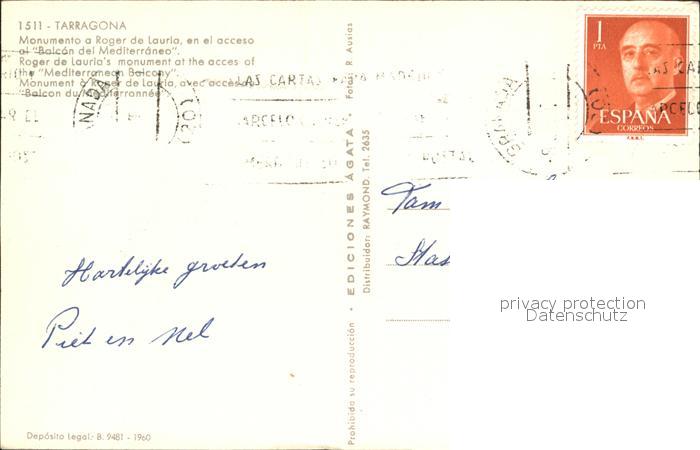 1511 - TARRAGONA
Monumento a Roger de Lauria, en el acceso
al "Balcón del Mediterráneo".
Roger de Lauria's monument at the acces of
the "Mediterranean Balcony".
Monument à Roger de Lauria, avec accès au
"Balcon du Mediterrannée".
LAS CARTAS
1
PTA
ESPAÑA
CORREOS
F.N.M.T.
Fotos: R. Ausias
EDICIONES ÁGATA
Distribuidor: RAYMOND. Tel. 2635
Prohibida su reproducción
Fam
Has
Hartelijke groeten
Piet en Nel
privacy protection
Datenschutz
Depósito Legal: B. 9481 - 1960